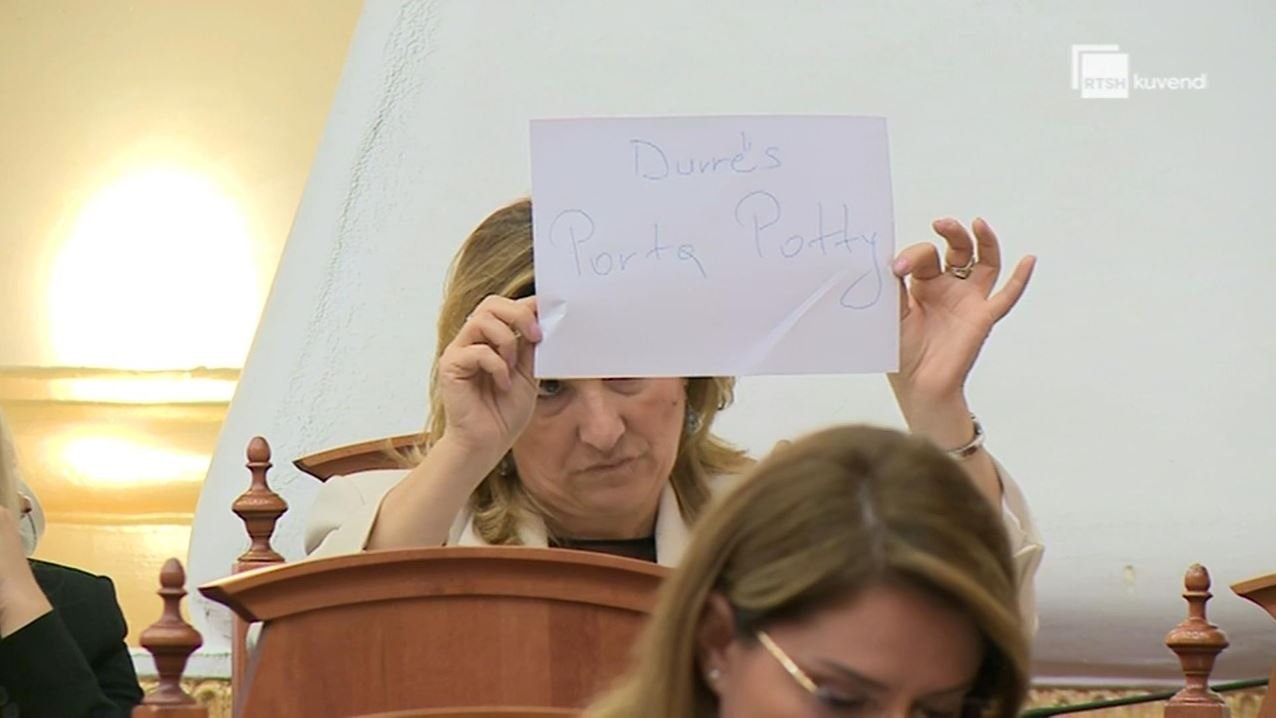 RTSH kuvend
Durrës
Porta Potty